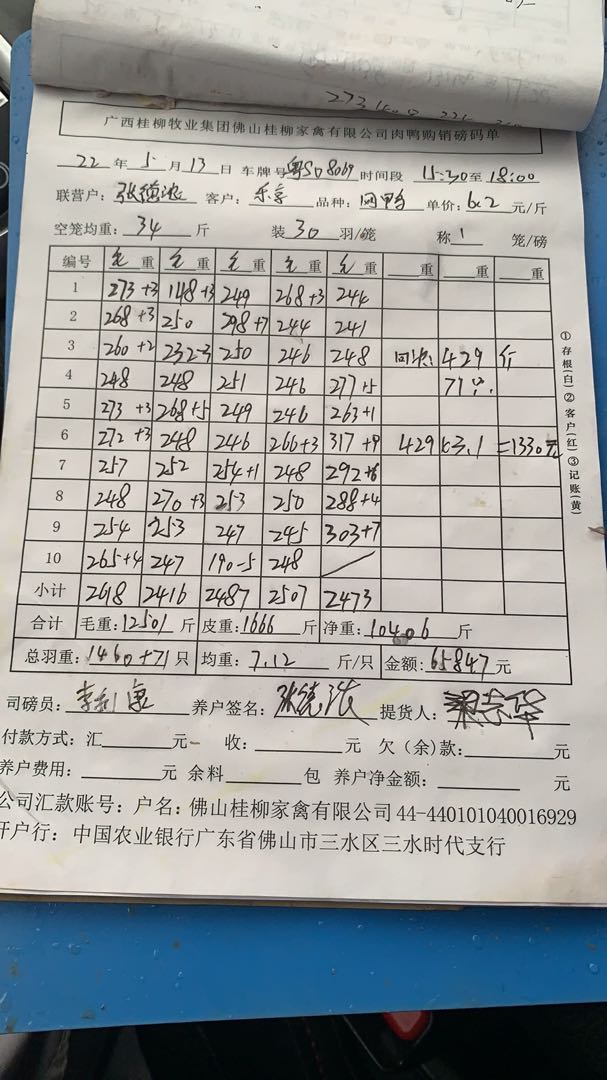 广西桂柳牧业集团佛山桂柳家禽有限公司肉鸭购销磅码单
22 年 5 月 13 日 车牌号 粤S08069 时间段 15:30 至 18:00
联营户: 客户: 乐富 品种: 网鸭 单价: 6.2 元/斤
空笼均重: 34 斤 装 30 羽/笼 称 1 笼/磅
编号 毛重 毛重 毛重 毛重 毛重 重 重 重
1 273+3 148+3 249 268+3 244
2 268+3 250 298+7 244 241
3 260+2 232-3 250 246 248 429 斤
4 248 248 251 246 277+5 71只.
5 273+3 268+5 249 246 263+1
6 272+3 248 246 266+3 317+9 429×3.1=1330元
7 257 252 254+1 248 292+6
8 248 270+3 253 250 288+4
9 254 253 247 245 303+7
10 265+4 247 190-5 248
小计 2618 2416 2487 2507 2473
合计 毛重: 12501 斤 皮重: 1666 斤 净重: 10406 斤
总羽重: 1460+71 只 均重: 7.12 斤/只 金额: 65847 元
司磅员: 李利康 养户签名: 提货人: 梁志华
付款方式: 汇 元 收: 元 欠(余)款: 元
养户费用: 元 余料 包 养户净金额: 元
公司汇款账号: 户名: 佛山桂柳家禽有限公司 44-440101040016929
开户行: 中国农业银行广东省佛山市三水区三水时代支行
①存根(白)②客户(红)③记账(黄)